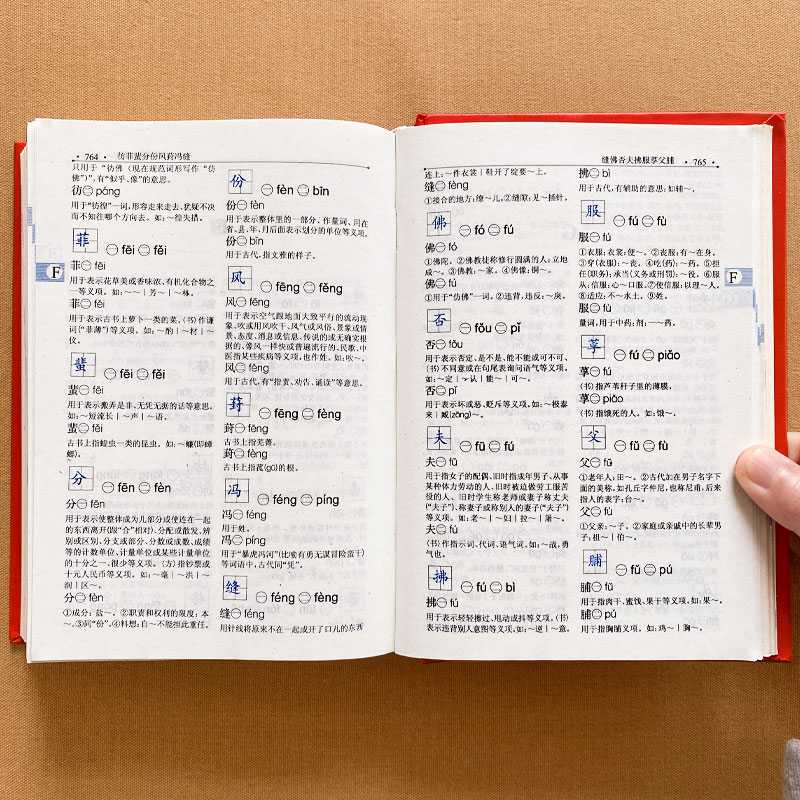 764 · 彷菲蜚分份风葑冯缝
只用于“彷佛(现在规范词形写作“仿
佛”)”,有“似乎、像”的意思。
彷㊁ páng
用于“彷徨”一词,形容走来走去、犹疑不决
而不知往哪个方向去。如:~徨失措。
菲 ㊀ fēi ㊁ fěi
菲㊀ fēi
用于表示花草美或香味浓、有机化合物之
一等义项。如:~~｜芳~｜~林。
菲㊁ fěi
用于表示古书上萝卜一类的菜、(书)作谦
词(“菲薄”)等义项。如:~酌｜~材｜~
仪。
蜚 ㊀ fēi ㊁ fěi
蜚㊀ fēi
用于表示搬弄是非、无凭无据的话等意思。
如:~短流长｜~声｜~语。
蜚㊁ fěi
古书上指蝗虫一类的昆虫。如:~蠊(即蟑
螂)。
分 ㊀ fēn ㊁ fèn
分㊀ fēn
用于表示使整体成为几部分或使连在一起
的东西离开(跟“合”相对)、分配或散发、辨
别或区别、分支或部分、分数或或数、成绩
等的计数单位、计量单位或某些计量单位
的十分之一、很少等义项。(方)指钞票或
十元人民币等义项。如:~毫｜~洪｜~
润｜区~。
分㊁ fèn
①成分:盐~。②职责和权利的限度:本
~。③同“份”。④料想:自~不能担此重任。
份 ㊀ fèn ㊁ bīn
份㊀ fèn
用于表示整体里的一部分、作量词、用在
省、县、年、月后面表示划分的单位等义项。
份㊁ bīn
用于古代,指文雅的样子。
风 ㊀ fēng ㊁ fěng
风㊀ fēng
用于表示空气跟地面大致平行的流动现
象、吹或用风吹干、风气或风俗、景象或情
景、态度、消息或信息、传说的或无确实根
据的、像风一样快或普遍流行的、民歌、中
医指某些疾病等义项,也作姓。如:吹~。
风㊁ fěng
用于古代,有“指责、劝告、诵读”等意思。
葑 ㊀ fēng ㊁ fèng
葑㊀ fēng
古书上指芜菁。
葑㊁ fèng
古书上指菰(gū)的根。
冯 ㊀ féng ㊁ píng
冯㊀ féng
用于姓。
冯㊁ píng
用于“暴虎冯河”(比喻有勇无谋冒险蛮干)
等词语中,古代同“凭”。
缝 ㊀ féng ㊁ fèng
缝㊀ féng
用针线将原来不在一起或开了口儿的东西
缝佛否夫拂服莩父脯 · 765
连上:~件衣裳｜鞋开了绽要~上。
缝㊁ fèng
①接合的地方:缭~儿。②缝隙:见~插针。
佛 ㊀ fó ㊁ fú
佛㊀ fó
①佛陀。②佛教徒称修行圆满的人:立地
成~。③佛教:~家。④佛像:铜~。
佛㊁ fú
①用于“仿佛”一词。②违背,违反:~戾。
否 ㊀ fǒu ㊁ pǐ
否㊀ fǒu
用于表示否定、是不是、能不能或可不可、
(书)不同意或在句尾表询问语气等义项。
如:~定｜~认｜能~｜可~。
否㊁ pǐ
用于表示坏或恶、贬斥等义项。如:~极泰
来｜臧(zāng)~。
夫 ㊀ fū ㊁ fú
夫㊀ fū
用于指女子的配偶、旧时指成年男子、从事
某种体力劳动的人、旧时被迫做劳工服苦
役的人、旧时学生称老师或妻子称丈夫
(“夫子”)、称妻子或称别人的妻子(“夫子”)
等义项。如:老~｜~妇｜拉~｜屠~。
夫㊁ fú
(书)作指示词、代词、语气词。如:~战,勇
气也。
拂 ㊀ fú ㊁ bì
拂㊀ fú
用于表示轻轻擦过、甩动或抖等义项。(书)
表示违背别人意图等义项。如:~逆｜~意。
拂㊁ bì
用于古代,有辅助的意思:如辅~。
服 ㊀ fú ㊁ fù
服㊀ fú
①衣服;衣裳:便~。②丧服:有~在身。
③穿(衣服):~丧。④吃(药):~药。⑤担
任(职务);承当(义务或刑罚):~役。⑥服
从;信服:心~口服。⑦使信服:以理~人。
⑧适应:不~水土。⑨姓。
服㊁ fù
量词,用于中药;剂:一~药。
莩 ㊀ fú ㊁ piǎo
莩㊀ fú
(书)指芦苇秆子里的薄膜。
莩㊁ piǎo
(书)指饿死的人。如:饿~。
父 ㊀ fǔ ㊁ fù
父㊀ fǔ
①老年人:田~。②古代加在男子名字下
面的美称,如孔丘字仲尼,也称尼甫,后来
指人的表字:台~。
父㊁ fù
①父亲:~子。②家庭或亲戚中的长辈男
子:祖~｜伯~。
脯 ㊀ fǔ ㊁ pú
脯㊀ fǔ
用于指肉干、蜜饯、果干等义项。如:果~。
脯㊁ pú
用于指胸脯义项。如:鸡~｜胸~。
F
F